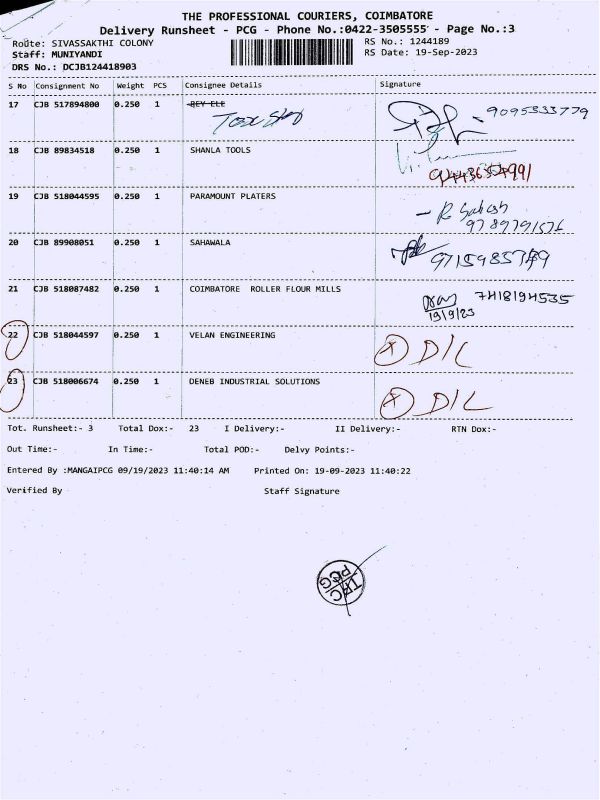 THE PROFESSIONAL COURIERS, COIMBATORE
Delivery Runsheet - PCG - Phone No.:0422-3505555 - Page No.:3
Route: SIVASSAKTHI COLONY RS No.: 1244189
Staff: MUNIYANDI RS Date: 19-Sep-2023
DRS No.: DCJB124418903
S No Consignment No Weight PCS Consignee Details Signature
17 CJB 517894800 0.250 1 REY ELE 9095333779
18 CJB 89834518 0.250 1 SHANLA TOOLS
19 CJB 518044595 0.250 1 PARAMOUNT PLATERS
9789791576
20 CJB 89908051 0.250 1 SAHAWALA
21 CJB 518087482 0.250 1 COIMBATORE ROLLER FLOUR MILLS 7418194535
19/9/23
22 CJB 518044597 0.250 1 VELAN ENGINEERING X D/L
23 CJB 518006674 0.250 1 DENEB INDUSTRIAL SOLUTIONS X D/L
Tot. Runsheet:- 3 Total Dox:- 23 I Delivery:- II Delivery:- RTN Dox:-
Out Time:- In Time:- Total POD:- Delvy Points:-
Entered By :MANGAIPCG 09/19/2023 11:40:14 AM Printed On: 19-09-2023 11:40:22
Verified By Staff Signature
TPC
PCG